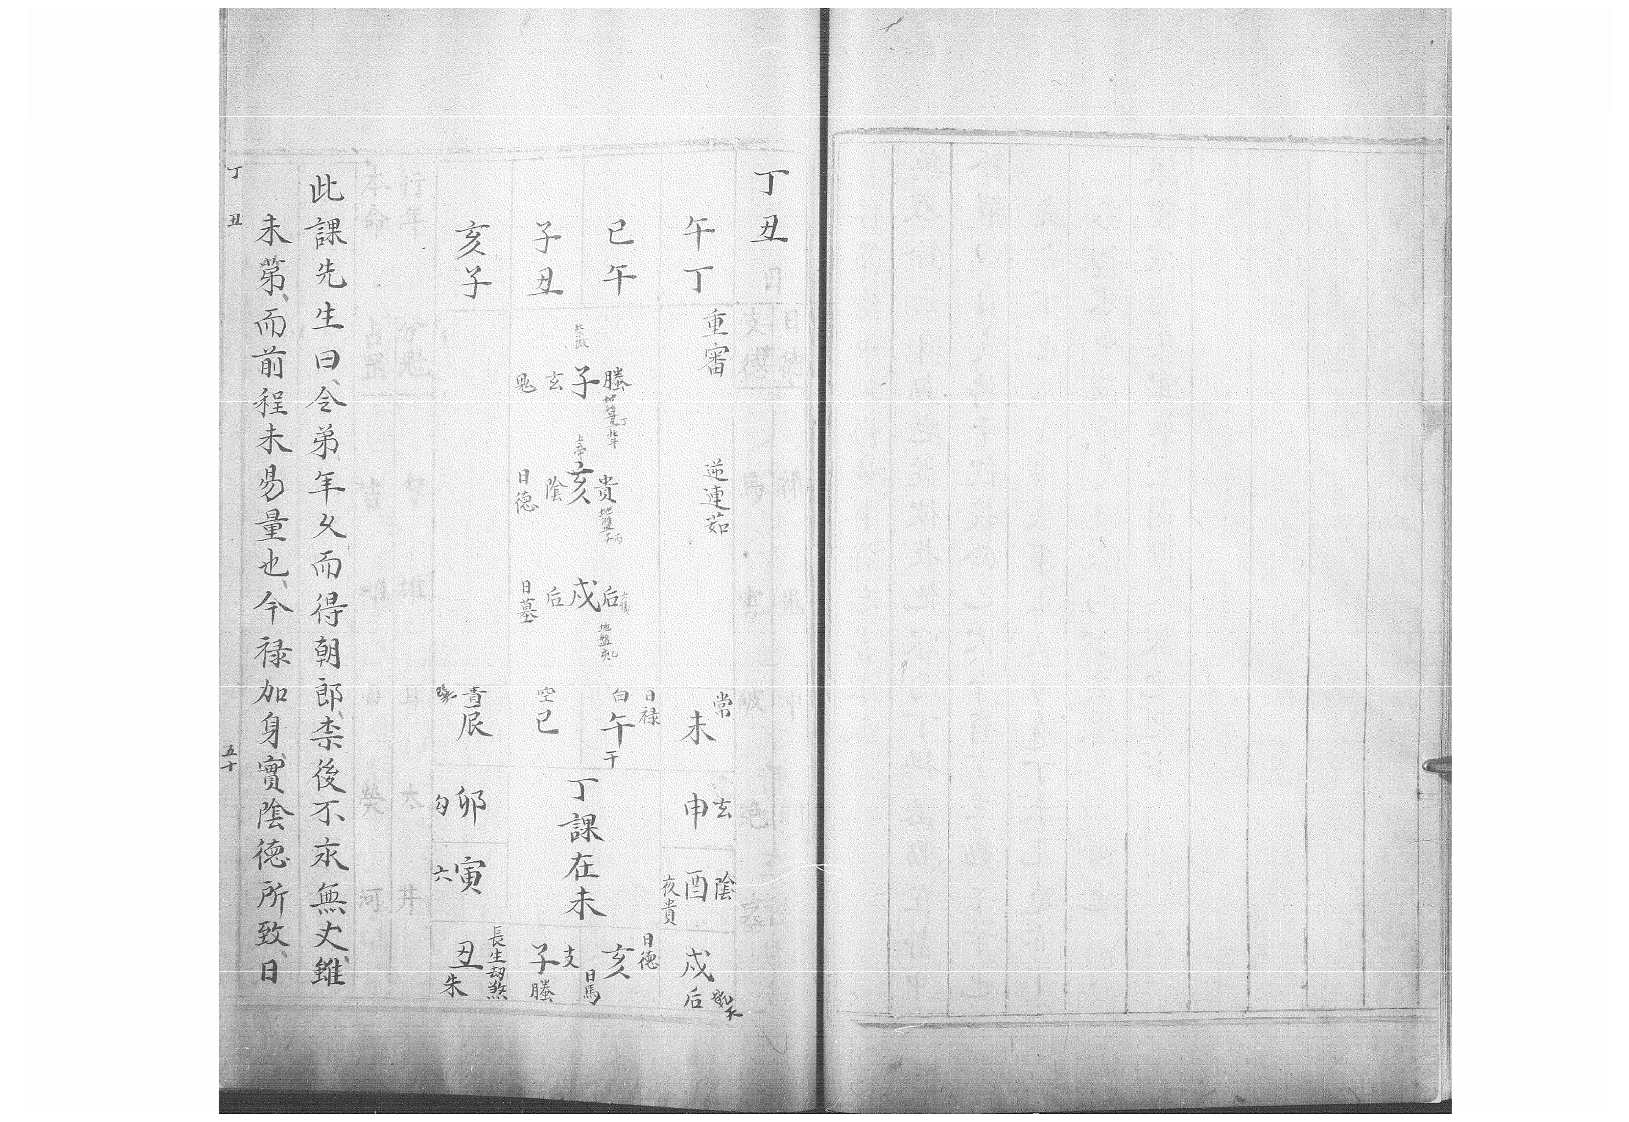 丁丑
午丁
巳午
子丑
亥子
重審
逆連茹
螣子玄鬼
貴亥陰日德
后戌后日墓
上帝
常未
日祿
白午干
空巳
青辰
丁課在未
玄申
陰酉夜貴
戌后
日德亥日馬
支子螣
長生劫煞
丑朱
六寅
勾卯
此課先生曰令弟年久而得朝郎柰後不永無丈雖
未第而前程未易量也今祿加身實陰德所致日
丁丑
五十